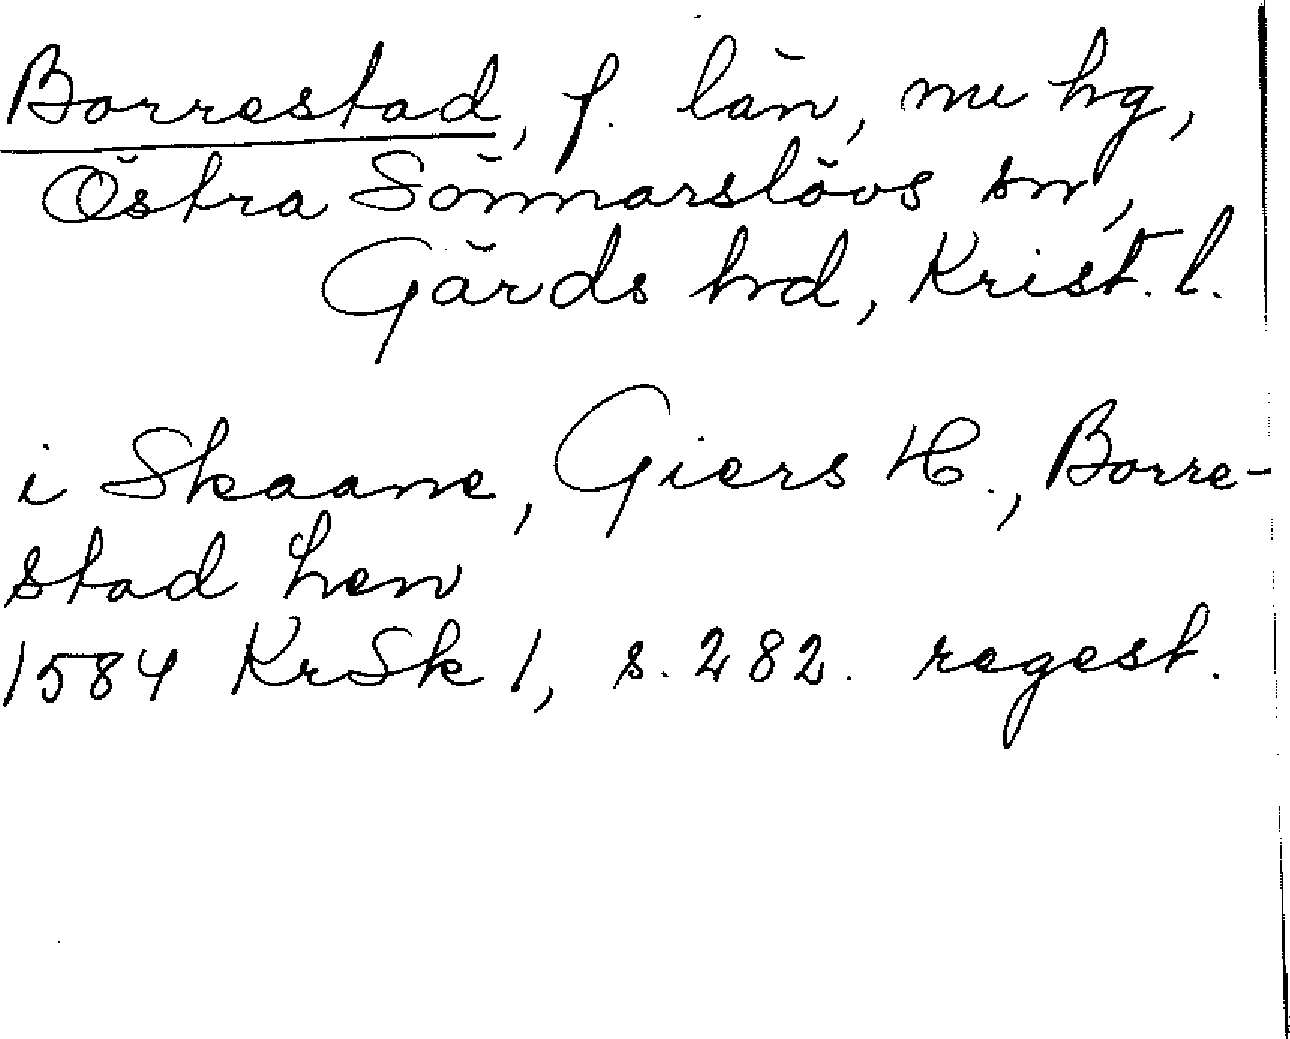 Borrestad, f. län, nu hg,
Östra Sönnarslövs sn,
Gärds hd, Krist. l.
i Skaane, Giers H., Borre-
stad len
1584 KrSk 1, s. 282. regest.